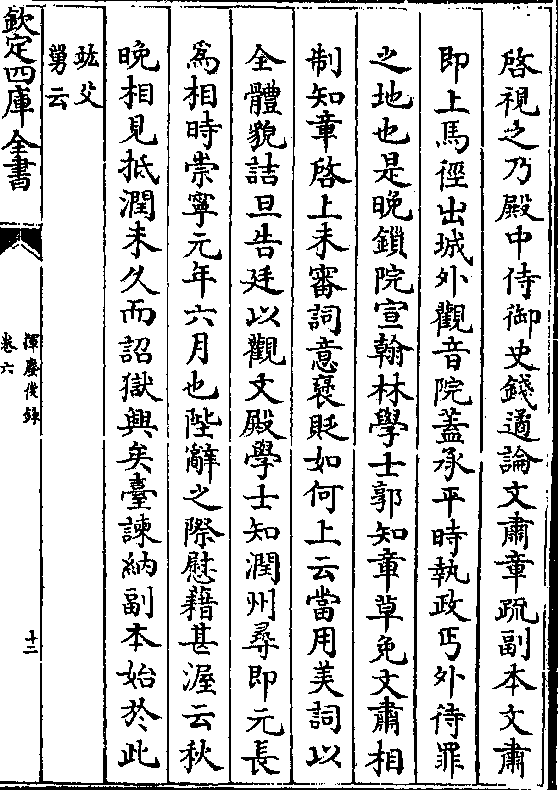 啓視之乃殿中侍御史錢遹論文肅章疏副本文肅
即上馬徑出城外觀音院蓋承平時執政丐外待罪
之地也是晚鎖院宣翰林學士郭知章草免文肅相
制知章啓上未審詞意褒貶如何上云當用美詞以
全體貌詰旦告廷以觀文殿學士知潤州尋即元長
為相時崇寧元年六月也陛辭之際慰藉甚渥云秋
晚相見抵潤未久而詔獄興矣臺諫納副本始於此
竑父
舅云
欽定四庫全書
揮麈後錄
卷六
十二